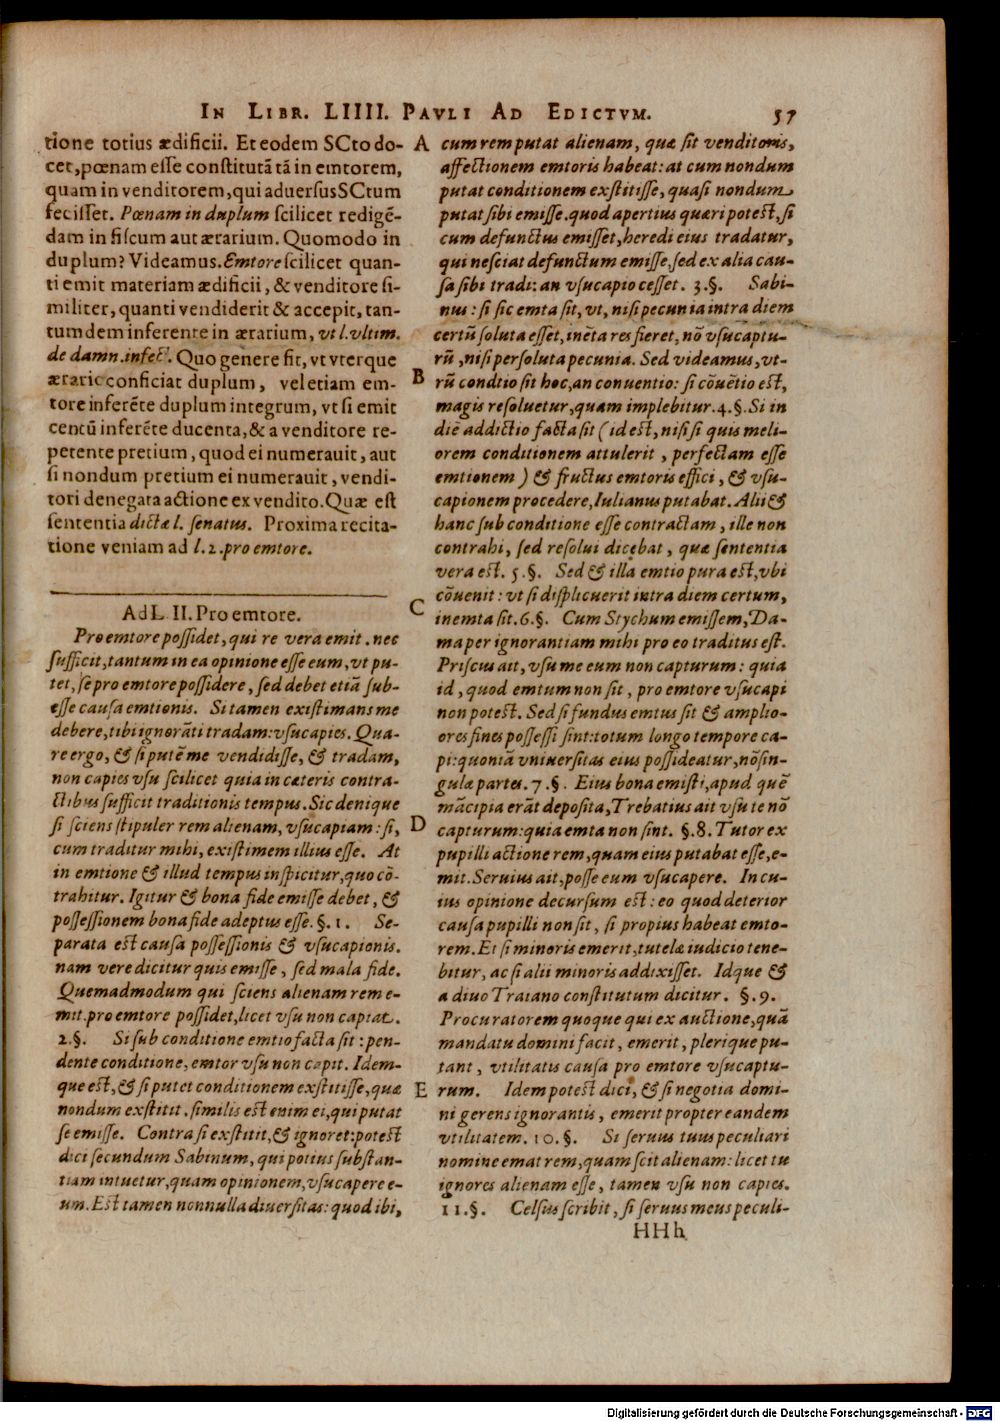 IN LIBR. LIIII. PAVLI AD EDICTVM. 57
tione totius ædificii. Et eodem SCto do-
cet, pœnam esse constitutā tā in emtorem,
quam in venditorem, qui aduersus SCtum
fecisset. Pœnam in duplum scilicet redigē-
dam in fiscum aut ærarium. Quomodo in
duplum? Videamus. Emtore scilicet quan-
ti emit materiam ædificii, & venditore si-
militer, quanti vendiderit & accepit, tan-
tumdem inferente in ærarium, vt l. vltim.
de damn. infect. Quo genere fit, vt vterque
ærario conficiat duplum, vel etiam em-
tore inferēte duplum integrum, vt si emit
centū inferēte ducenta, & a venditore re-
petente pretium, quod ei numerauit, aut
si nondum pretium ei numerauit, vendi-
tori denegata actione ex vendito. Quæ est
sententia dictæ l. senatus. Proxima recita-
tione veniam ad l. 2. pro emtore.
Ad L. II. Pro emtore.
Pro emtore possidet, qui re vera emit. nec
sufficit, tantum in ea opinione esse eum, vt pu-
tet, se pro emtore possidere, sed debet etiā sub-
esse causa emtionis. Si tamen existimans me
debere, tibi ignorāti tradam: vsucapies. Qua-
re ergo, & si putē me vendidisse, & tradam,
non capies vsu scilicet quia in cæteris contra-
ctibus sufficit traditionis tempus. Sic denique
si sciens stipuler rem alienam, vsucapiam: si,
cum traditur mihi, existimem illius esse. At
in emtione & illud tempus inspicitur, quo cō-
trahitur. Igitur & bona fide emisse debet, &
possessionem bona fide adeptus esse. §. 1. Se-
parata est causa possessionis & vsucapionis.
nam vere dicitur quis emisse, sed mala fide.
Quemadmodum qui sciens alienam rem e-
mit. pro emtore possidet, licet vsu non capiat.
2. §. Si sub conditione emtio facta sit: pen-
dente conditione, emtor vsu non capit. Idem-
que est, & si putet conditionem exstitisse, quæ
nondum exstitit. similis est enim ei, qui putat
se emisse. Contra si exstitit, & ignoret: potest
dici secundum Sabinum, qui potius substan-
tiam intuetur, quam opinionem, vsucapere e-
um. Est tamen nonnulla diuersitas: quod ibi,
A
B
C
D
E
cum rem putat alienam, quæ sit venditoris,
affectionem emtoris habeat: at cum nondum
putat conditionem exstitisse, quasi nondum
putat sibi emisse. quod apertius quæri potest, si
cum defunctus emisset, heredi eius tradatur,
qui nesciat defunctum emisse, sed ex alia cau-
sa sibi tradi: an vsucapio cesset. 3. §. Sabi-
nus: si sic emta sit, vt, nisi pecunia intra diem
certū soluta esset, inēta res fieret, nō vsucaptu-
rū, nisi persoluta pecunia. Sed videamus, vt-
rū condtio sit hoc, an conuentio: si cōuētio est,
magis resoluetur, quam implebitur. 4. §. Si in
diē addictio facta sit (id est, nisi si quis meli-
orem conditionem attulerit, perfectam esse
emtionem) & fructus emtoris effici, & vsu-
capionem procedere, Iulianus putabat. Alii &
hanc sub conditione esse contractam, ille non
contrahi, sed resolui dicebat, quæ sententia
vera est. 5. §. Sed & illa emtio pura est, vbi
cōuenit: vt si displicuerit intra diem certum,
inemta sit. 6. §. Cum Stychum emissem, Da-
ma per ignorantiam mihi pro eo traditus est.
Priscus ait, vsu me eum non capturum: quia
id, quod emtum non sit, pro emtore vsucapi
non potest. Sed si fundus emtus sit & amplio-
ores fines possessi sint: totum longo tempore ca-
pi: quoniā vniuersitas eius possideatur, nō sin-
gulæ partes. 7. §. Eius bona emisti, apud quē
mācipia erāt deposita, Trebatius ait vsu te nō
capturum: quia emta non sint. §. 8. Tutor ex
pupilli actione rem, quam eius putabat esse, e-
mit. Seruius ait, posse eum vsucapere. In cu-
ius opinione decursum est: eo quod deterior
causa pupilli non sit, si propius habeat emto-
rem. Et si minoris emerit, tutelæ iudicio tene-
bitur, ac si alii minoris addixisset. Idque &
a diuo Traiano constitutum dicitur. §. 9.
Procuratorem quoque qui ex auctione, quā
mandatu domini facit, emerit, plerique pu-
tant, vtilitatis causa pro emtore vsucaptu-
rum. Idem potest dici, & si negotia domi-
ni gerens ignorantis, emerit propter eandem
vtilitatem. 10. §. Si seruus tuus peculiari
nomine emat rem, quam scit alienam: licet tu
ignores alienam esse, tamen vsu non capies.
11. §. Celsus scribit, si seruus meus peculi-
HHh
Digitalisierung gefördert durch die Deutsche Forschungsgemeinschaft - DFG